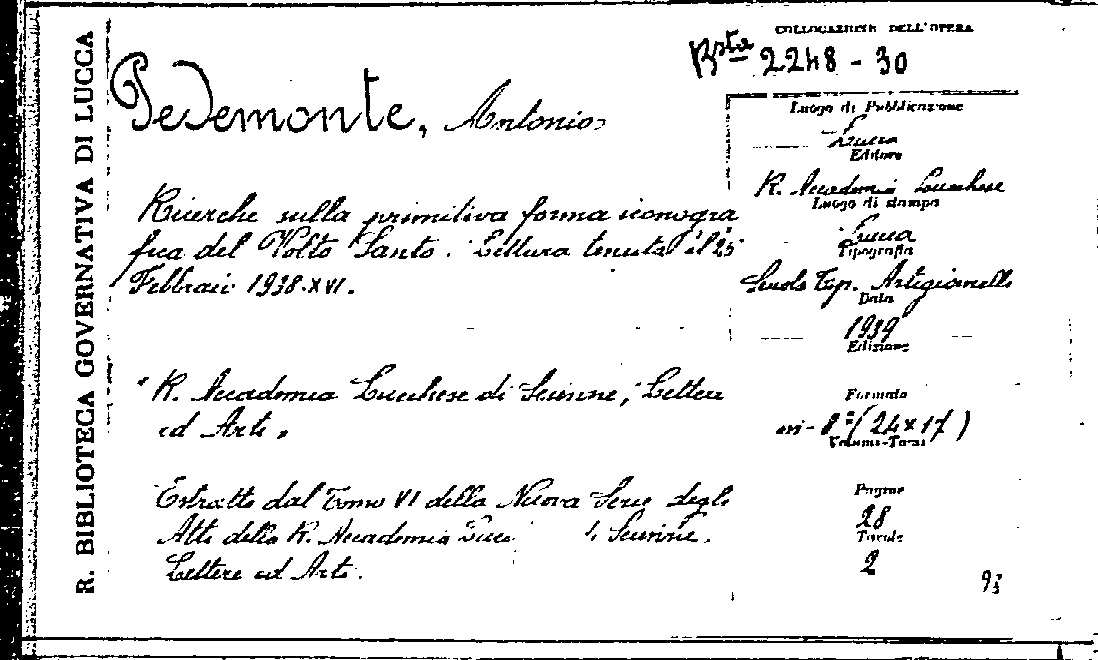 R. BIBLIOTECA GOVERNATIVA DI LUCCA
COLLOCAZIONE DELL'OPERA
Bsta 2248 - 30
Pedemonte, Antonio
Ricerche sulla primitiva forma iconogra
fica del Volto Santo. Lettura tenuta il 25
Febbraio 1938.XVI.
"R. Accademia Lucchese di Scienze, Lettere
ed Arti"
Estratto dal Tomo VI della Nuova Serie degli
Atti della R. Accademia Lucc. Scienze.
Lettere ed Arti.
Luogo di Pubblicazione
Lucca
Editore
R. Accademia Lucchese
Luogo di stampa
Lucca
Tipografia
Scuola Tip. Artigianelli
Data
1939
Edizione
Formato
in-8° (24 x 17)
Volumi-Tomi
Pagine
28
Tavole
2
93